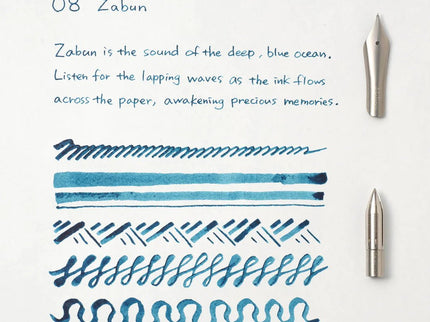 08 Zabun
Zabun is the sound of the deep, blue ocean.
Listen for the lapping waves as the ink flows
across the paper, awakening precious memories.